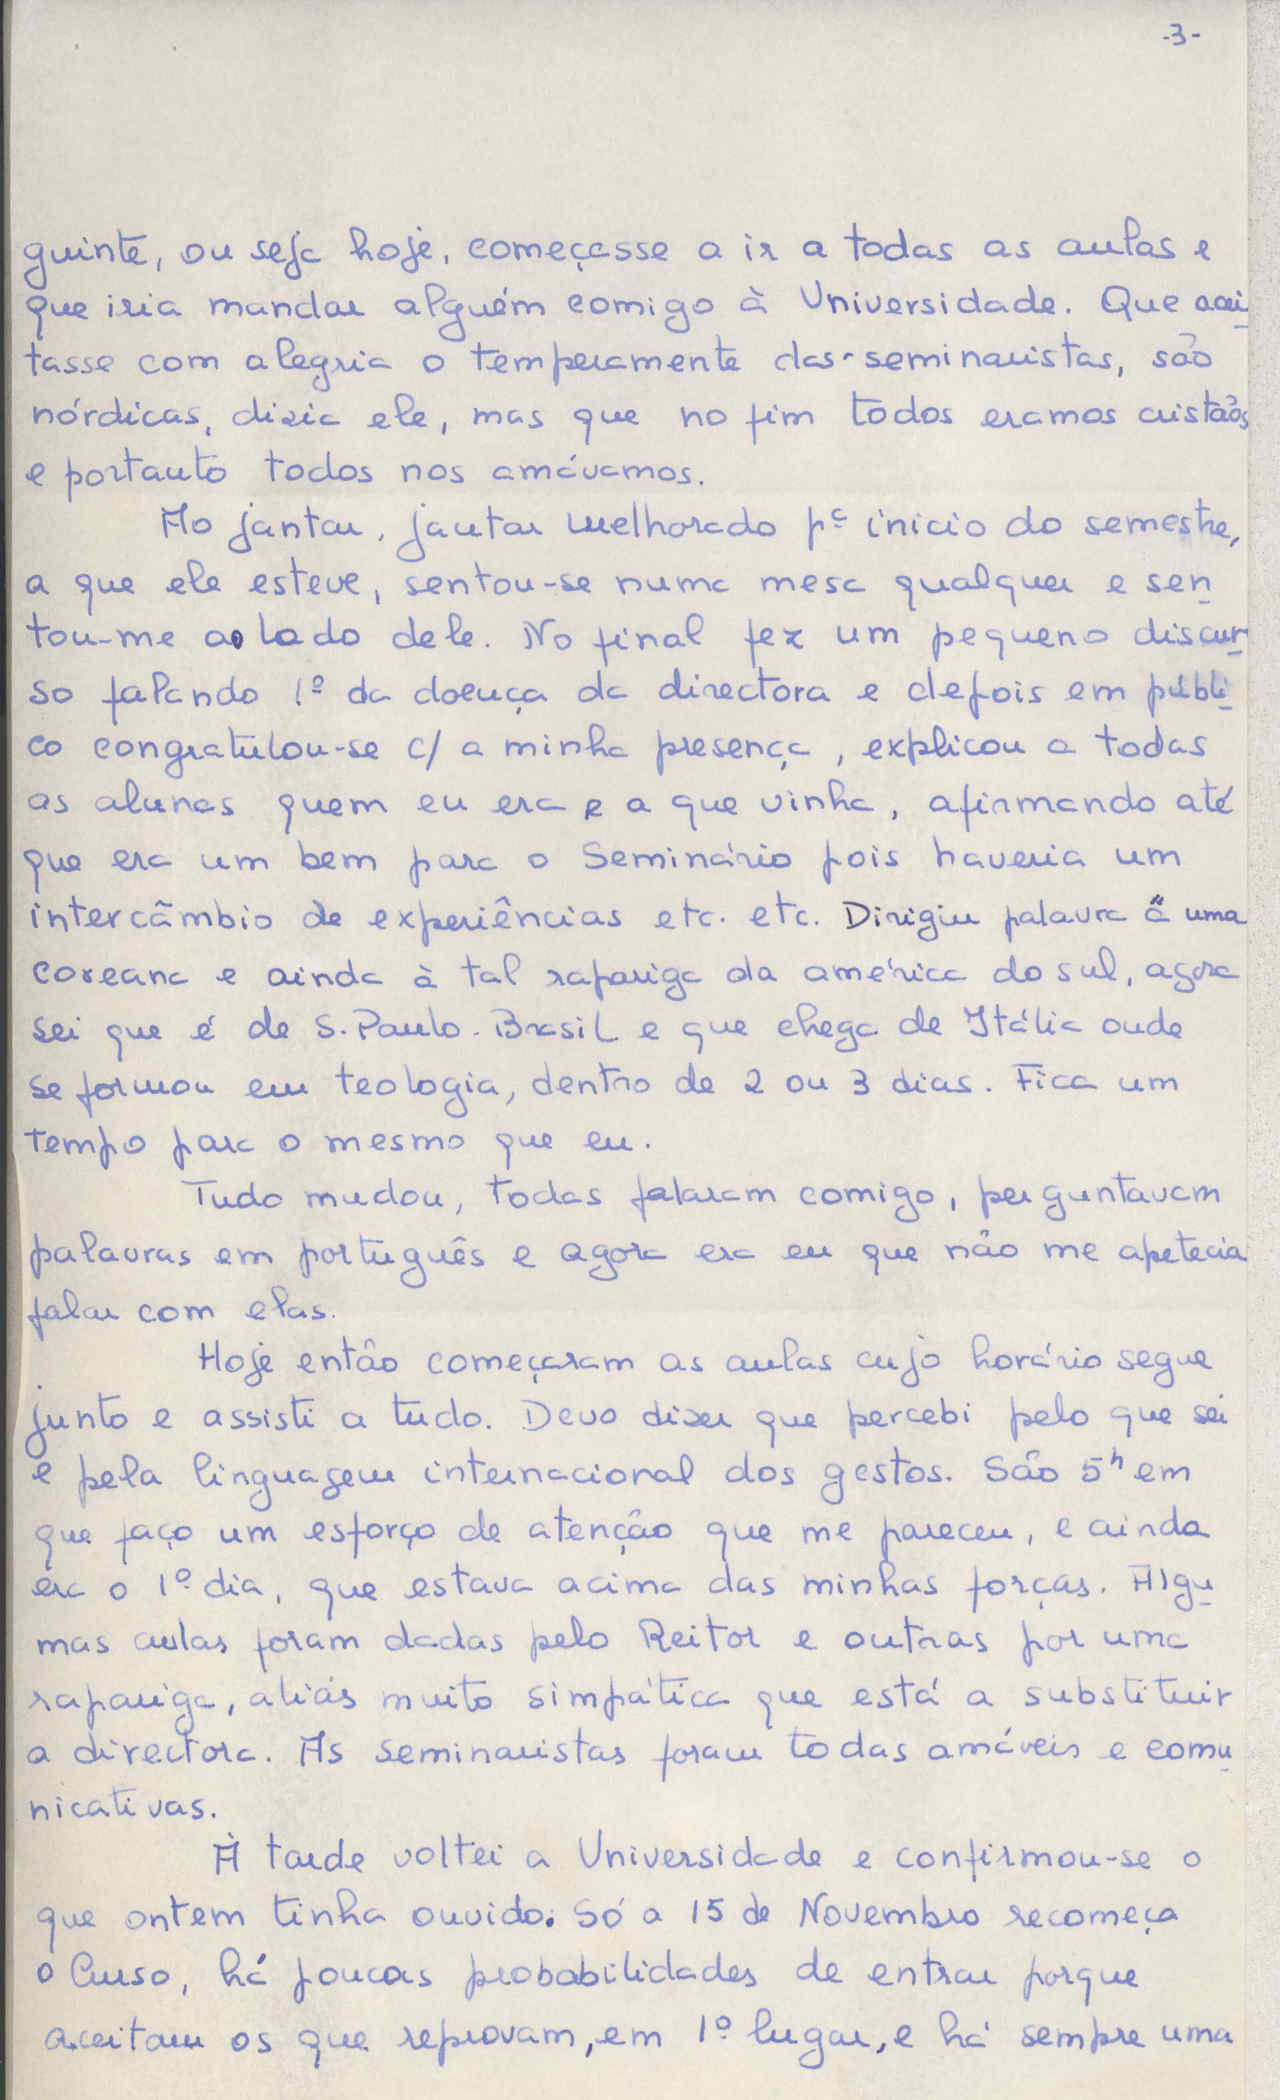 -3-
guinte, ou seja hoje, começasse a ir a todas as aulas e
que iria mandar alguém comigo à Universidade. Que acei
tasse com alegria o temperamente das seminaristas, são
nórdicas, dizia ele, mas que no fim todos eramos cristãos
e portanto todos nos amávamos.
Ao jantar, jantar melhorado pª início do semestre,
a que ele esteve, sentou-se numa mesa qualquer e sen
tou-me ao lado dele. No final fez um pequeno discur
so falando 1º da doença da directora e depois em públi
co congratulou-se c/ a minha presença, explicou a todas
as alunas quem eu era e a que vinha, afirmando até
que era um bem para o Seminário pois haveria um
intercâmbio de experiências etc. etc. Dirigiu palavra a uma
coreana e ainda à tal rapariga da américa do sul, agora
sei que é de S. Paulo - Brasil e que chega de Itália onde
se formou em teologia, dentro de 2 ou 3 dias. Fica um
tempo para o mesmo que eu.
Tudo mudou, todas falaram comigo, perguntavam
palavras em português e agora era eu que não me apetecia
falar com elas.
Hoje então começaram as aulas cujo horário segue
junto e assisti a tudo. Devo dizer que percebi pelo que sei
e pela linguagem internacional dos gestos. São 5h em
que faço um esforço de atenção que me pareceu, e ainda
era o 1º dia, que estava acima das minhas forças. Algu
mas aulas foram dadas pelo Reitor e outras por uma
rapariga, aliás muito simpática que está a substituir
a directora. As seminaristas foram todas amáveis e comu
nicativas.
À tarde voltei a Universidade e confirmou-se o
que ontem tinha ouvido. Só a 15 de Novembro recomeça
o Curso, há poucas probabilidades de entrar porque
aceitam os que reprovam, em 1º lugar, e há sempre uma